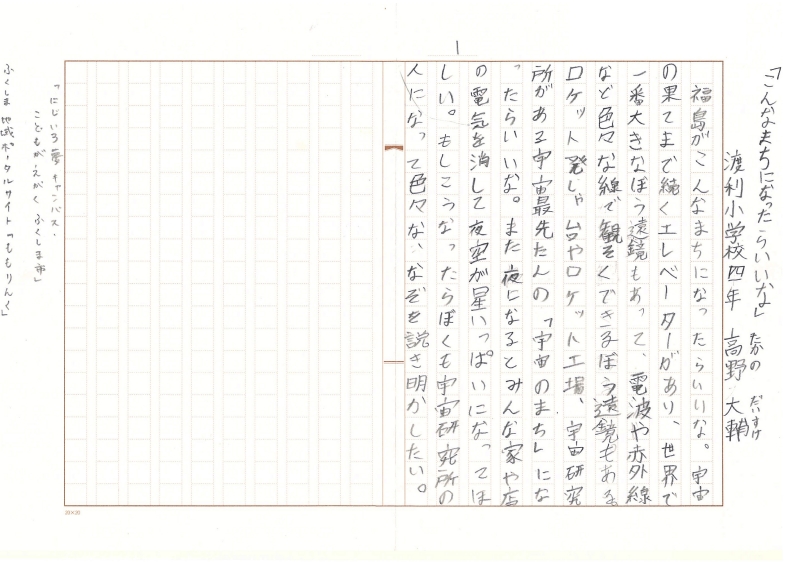 1
「こんなまちになったらいいな」
渡利小学校四年 高野 大輔
たかの だいすけ
福島がこんなまちになったらいいな。宇宙
の果てまで続くエレベーターがあり、世界で
一番大きなぼう遠鏡もあって、電波や赤外線
など色々な線で観そくできるぼう遠鏡もある。
ロケット発しゃ台やロケット工場、宇宙研究
所がある宇宙最先たんの「宇宙のまち」にな
ったらいいな。また夜になるとみんな家や店
の電気を消して夜空が星いっぱいになってほ
しい。もしこうなったらぼくも宇宙研究所の
人になって色々ななぞを説き明かしたい。
「にじいろ夢キャンバス・
こどもがえがくふくしま市」
ふくしま地域ポータルサイト「ももりんく」
20×20